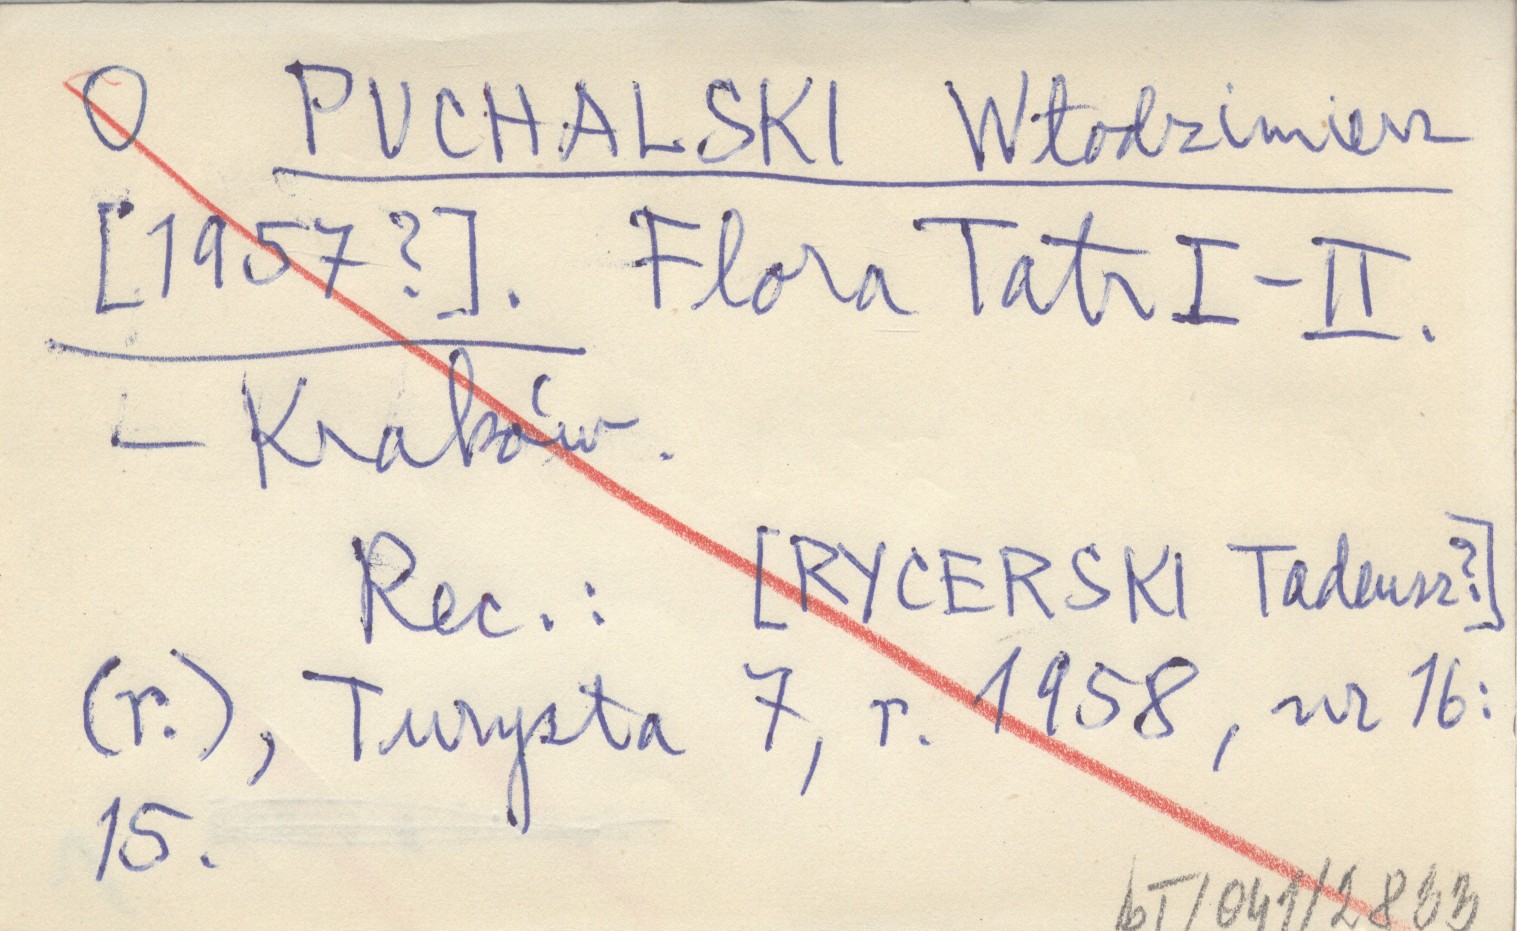 O PUCHALSKI Włodzimierz
[1957?]. Flora Tatr I-II.
– Kraków.
Rec.: [RYCERSKI Tadeusz?]
(r.), Turysta 7, r. 1958, nr 16:
15.
bT/041/2833